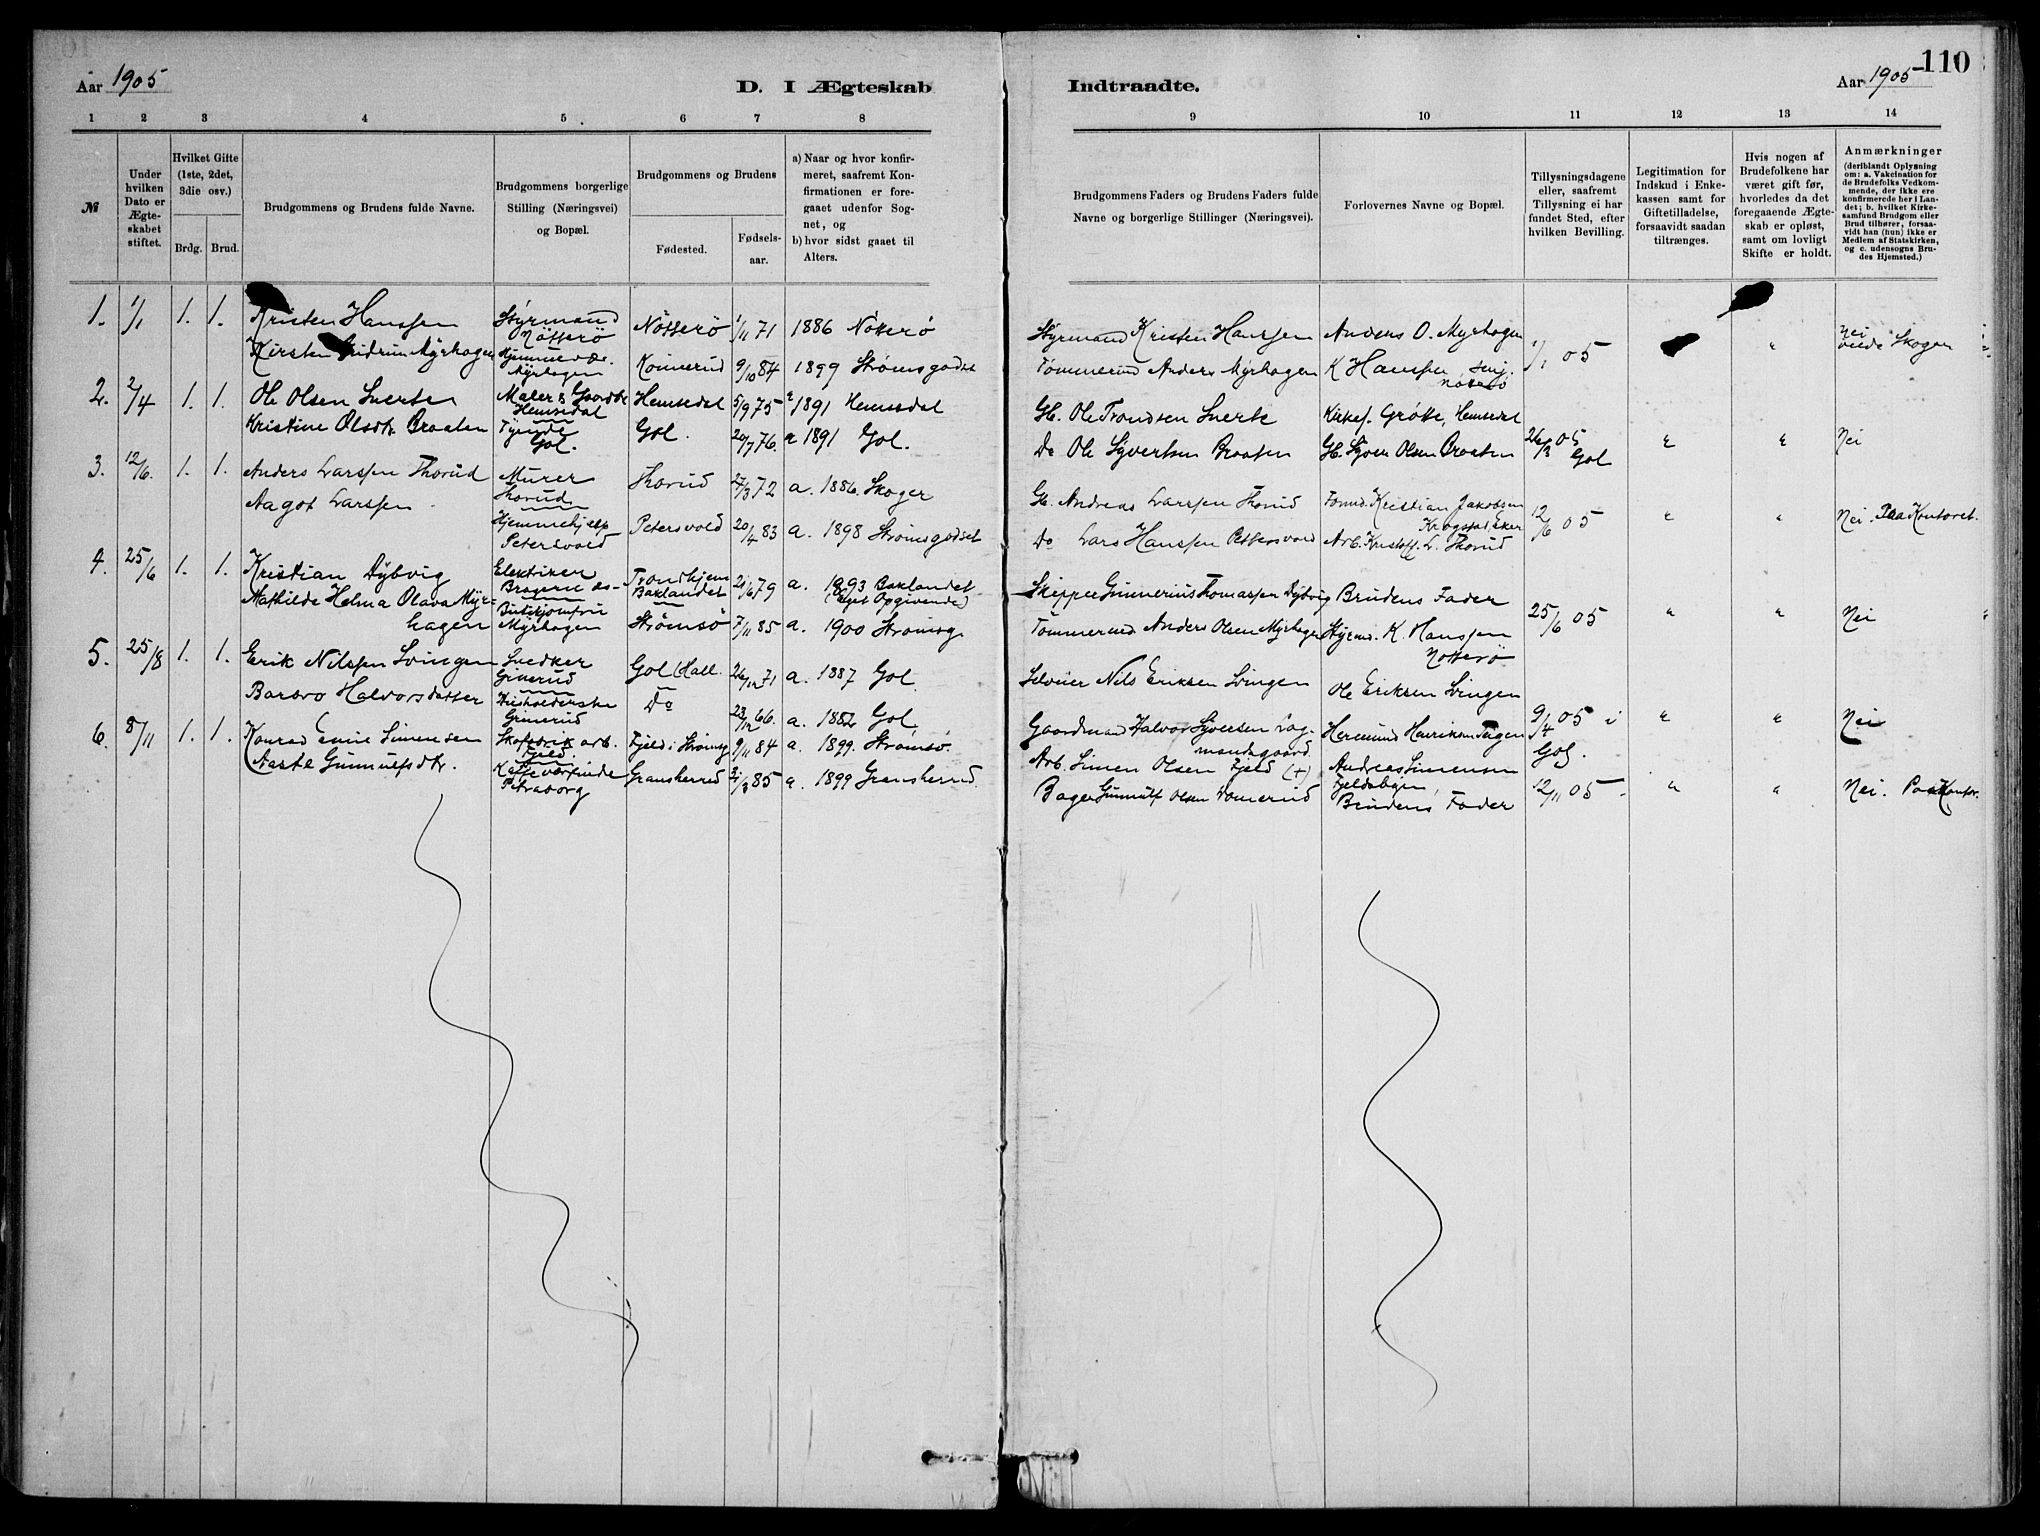 Aar 1905
D. I Ægteskab
1 2 3 4 5 6 7 8
№
Under hvilken Dato er Ægteskabet stiftet.
Hvilket Gifte (1ste, 2det, 3die osv.)
Brdg. Brud.
Brudgommens og Brudens fulde Navne.
Brudgommens borgerlige Stilling (Næringsvei) og Bopæl.
Brudgommens og Brudens
Fødested. Fødselsaar.
a) Naar og hvor konfirmeret, saafremt Konfirmationen er foregaaet udenfor Sognet, og
b) hvor sidst gaaet til Alters.
1. 1/1 1. 1. Kristen Hanssen Styrmand Nötterö Nötterö 1/11 71 1886 Nötterö
Kirsten Gudrun Myrhagen Hjemmevær. Myrhagen Konnerud 9/10 84 1899 Strømsgodset
2. 2/4 1. 1. Ole Olsen Snerten Maler & Gaardbr. Hemsedal Hemsedal 5/9 75 1891 Hemsedal
Kristine Olsdtr. Braaten Tjende Gol. Gol. 20/7 76. a 1891 Gol.
3. 12/6. 1. 1. Anders Larssen Thorud Murer Thorud Thorud 27/3 72 a. 1886. Skoger
Aagot Larssen Hjemmehjelp Petersvold Petersvold 20/4 83 a. 1898 Strømsgodset
4. 25/6 1. 1. Kristian Dybvig Elektriker Trondhjem Baklandet 21/6 79 a. 1893 Baklandet (Eget Opgivende)
Mathilde Helma Olava Myrhagen Butikjomfru Myrhagen Strømsø 7/11 85 a. 1900 Stromsg
5. 25/8 1. 1. Erik Nilssen Svingen Snedker Gimerud Gol (Hall. 26/12 71 a. 1887 Gol
Barbro Halvorsdatter Husholderske Gimerud Do 23/12 66. a. 1882 Gol.
6. 8/11 1. 1. Konrad Emil Simensen Skofabrik arb. Fjeld Fjeld i Strömsg 9/11 84 a. 1899. Strömsö.
Aaste Gunnulfsdtr. Gransherred 2/3 85 a. 1899 Gransherred
110
Indtraadte.
Aar 1905
9 10 11 12 13 14
Brudgommens Faders og Brudens Faders fulde Navne og borgerlige Stillinger (Næringsvei).
Forlovernes Navne og Bopæl.
Tillysningsdagene eller, saafremt Tillysning ei har fundet Sted, efter hvilken Bevilling.
Legitimation for Indskud i Enkekassen samt for Giftetilladelse, forsaavidt saadan tiltrænges.
Hvis nogen af Brudefolkene har været gift før, hvorledes da det foregaaende Ægteskab er opløst, samt om lovligt Skifte er holdt.
Anmærkninger (deriblandt Oplysning om: a. Vakcination for de Brudefolks Vedkommende, der ikke ere konfirmerede her i Landet; b. hvilket Kirkesamfund Brudgom eller Brud tilhører, forsaavidt han (hun) ikke er Medlem af Statskirken, og c. udensogns Brudes Hjemsted.)
Styrmand Kristen Hanssen Anders O. Myrhagen 1/1 05 " Nei viede Skoger
Tømmermd Anders Myrhagen K Hanssen senj. Nøtterø
Gb. Ole Trondsen Snerte Kirkes. Grøtte, Hemsedal 26/3 05 Gol " " Nei
Do Ole Syversen Braaten Gb. Syver Olsen Braaten
Gb. Andreas Larssen Thorud Formd. Kristian Jakobsen Krogstad, Eker 12/6 05 " " Nei. Paa Kontoret.
Do Lars Hanssen Pettersvold Arb. Kristoff. L. Thorud
Skipper Gunnerius Thomassen Dybvig Brudens Fader 25/6 05 " " Nei
Tømmermd Anders Olsen Myrhagen Styrmd. K. Hanssen Nøtterø
Selveier Nils Eriksen Svingen Ole Eriksen Svingen
Gaardmand Halvor Syversen Lagmandsgaard Hermund Henriksen 9/4 05 i Gol. " " Nei
Arb. Simen Olsen Fjeld (+) Andreas Simensen
Bager Gunnulf Olsen Brudens Fader 12/11 05 " " Nei. Paa Kontor.